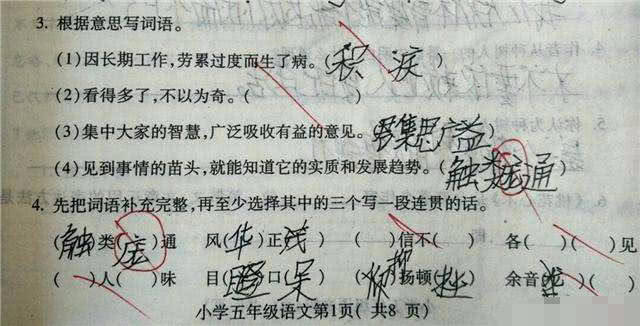 3. 根据意思写词语。
(1)因长期工作,劳累过度而生了病。(积
(2)看得多了,不以为奇。( )
(3)集中大家的智慧,广泛吸收有益的意见。集思广益
(4)见到事情的苗头,就能知道它的实质和发展趋势。(触类 通)
4. 先把词语补充完整,再至少选择其中的三个写一段连贯的话。
(触)类( )通 风(华)正( ) ( )信不( ) 各( )( )见
( )人( )味 目( )口(呆) ( )扬顿(挫) 余音( )( )
小学五年级语文第1页( 共8 页)